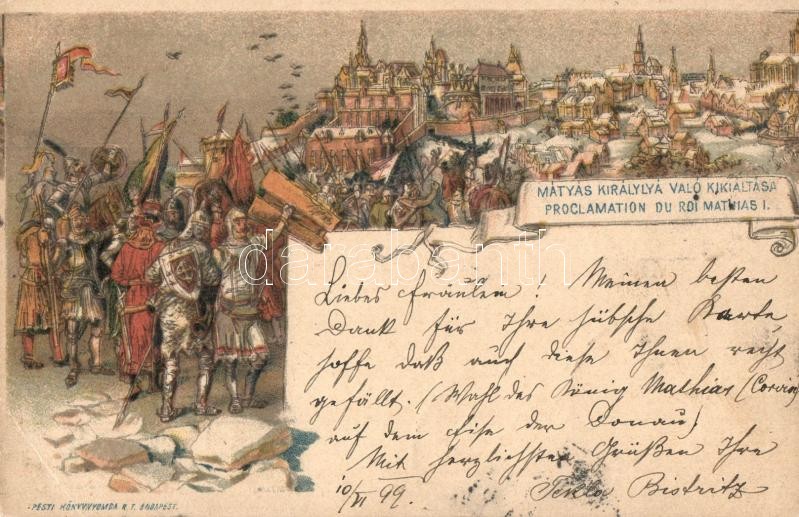 MÁTYÁS KIRÁLYLYÁ VALÓ KIKIÁLTÁSA
PROCLAMATION DU ROI MATHIAS I.
darabanth
Liebes Fräulein! Meinen besten
Dank für Ihre hübsche Karte
hoffe daß auch diese Ihnen recht
gefällt. (Wahl des König Mathias (Corvin)
auf dem Eise der Donau)
Mit herzlichsten Grüßen Ihre
10/VI 99. Bistritz
PESTI KÖNYVNYOMDA R. T. BUDAPEST.